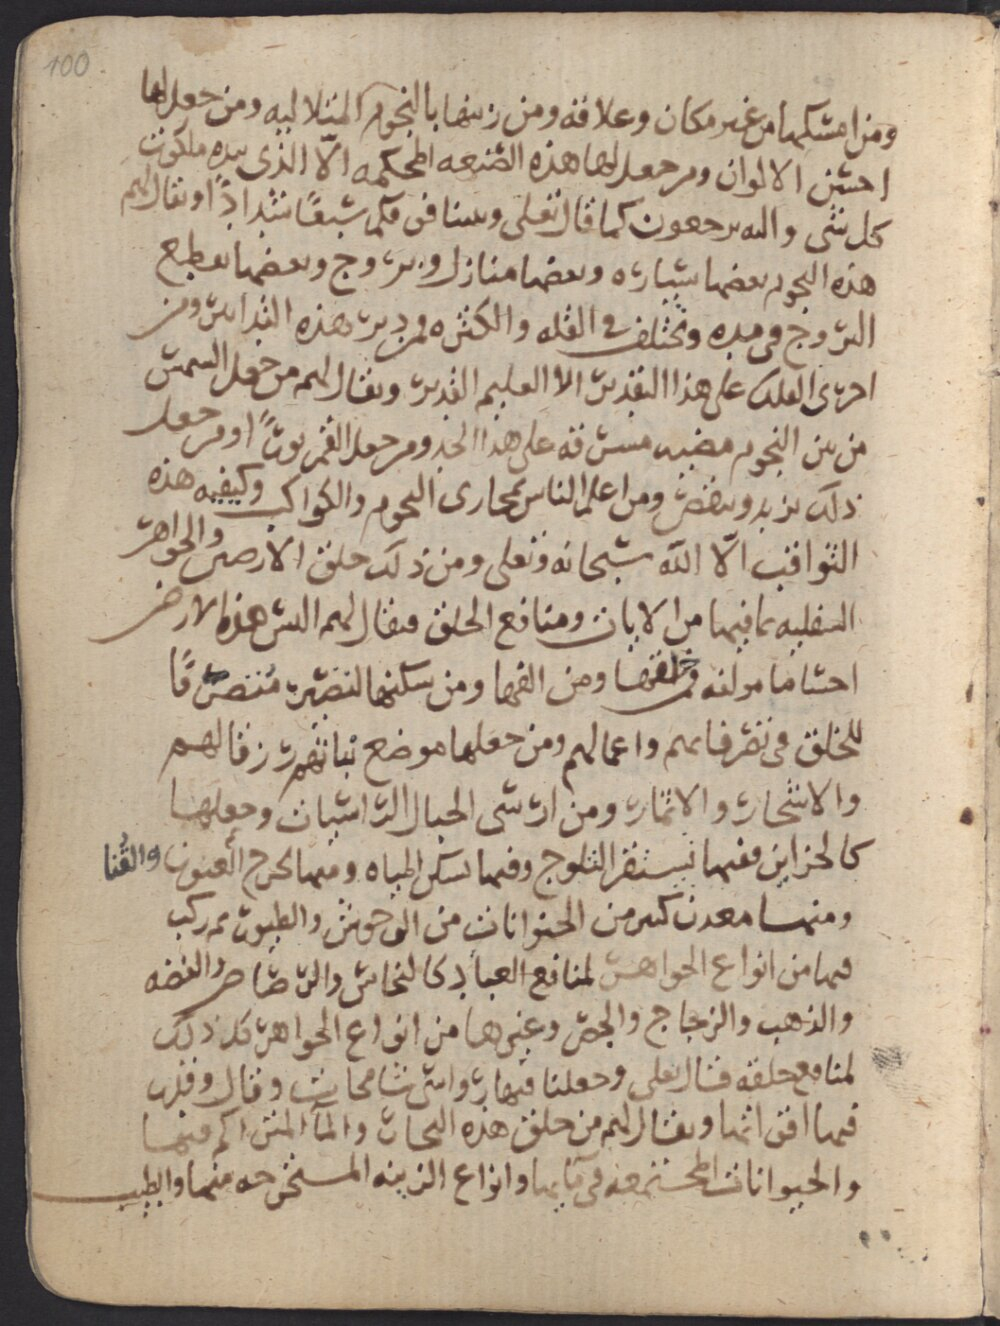 100
ومن امسكها من غير مكان وعلاقه ومن زينها بالنجوم المتلاليه ومن جعل لها
احسن الالوان ومن جعل لها هذه الصنعه المحكمه الّا الذى بيده ملكوت
كل شى واليه يرجعون كما قال تعلى وبنينا فوقكم سبعًا شدادًا ويقال لهم
هذه النجوم بعضها سياره وبعضها منازل وبروج وبعضها يقطع
البروج فى مده وتختلف فى القله والكثره فمن دبر هذه التدابير ومن
اجرى الفلك على هذا التقدير الا العليم القدير ويقال لهم من جعل الشمس
من بين النجوم مضيه مشرقه على هذا الحد ومن جعل القمر نورًا ومن جعل
ذلك يزيد وينقص ومن اعلم الناس بمجارى النجوم والكواكب وكيفيه هذه
الثواقب الّا اللّه سبحانه وتعلى ومن ذلك خلق الارض والجواهر
السفليه بما فيها من الايات ومنافع الخلق فيقال لهم اليس هذه الارض
احساما مولفه فمن خلقها ومن الفها ومن سكنها لتصير مُتصرفًا
للخلق فى تصرفاتهم واعمالهم ومن جعلها موضع نباتهم رزقا لهم
والاشجار والاثمار ومن ارسى الجبال الراسيات وجعلها
كالخزاين ففيها يستقر الثلوج وفيها تسكن المياه ومنها تخرج العيون والقُنا
ومنها معدن كثير من الحيوانات من الوحوش والطيور ثم ركب
فيها من انواع الجواهر لمنافع العباد كالنحاس والرصاص والفضه
والذهب والزجاج والجص وغيرها من انواع الجواهر كل ذلك
لمنافع خلقه فقال تعلى وجعلنا فيها رواسى شامخات وقال وقدر
فيها اقواتها ويقال لهم من خلق هذه البحار والمآ المتراكم فيها
والحيوانات المجتمعه فى مآيها وانواع الزينه المستخرجه منها والطيب